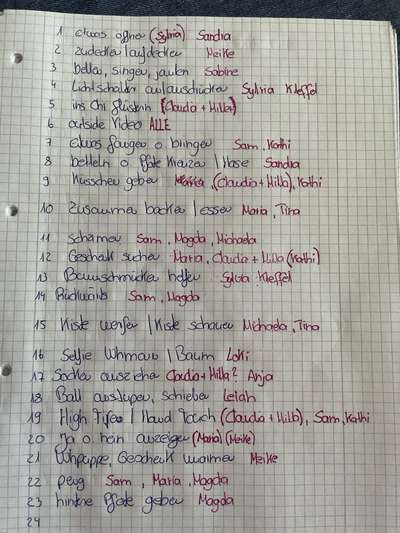 1 etwas öffnen (Sylvia) Sandra
2 zudecken / aufdecken Meike
3 bellen, singen, jaulen Sabine
4 Lichtschalter auf ausdrücken Sylvia Kleffel
5 ins Ohr flüstern (Claudia + Hilla)
6 outside Video ALLE
7 etwas fangen o bringen Sam, Kathi
8 betteln o Pfote Kreuzen / Hase Sandra
9 Küsschen geben Maria, (Claudia + Hilla), Kathi
10 Zusammen backen / essen Maria, Tina
11 schämen Sam, Magda, Michaela
12 Geschenk suchen Maria, Claudia + Hilla (Kathi)
13 Baumschmücken helfen Sylvia Kleffel
14 Rückwärts Sam, Magda
15 Kiste werfen / Kiste schauen Michaela, Tina
16 Selfie Whmann / Baum Loki
17 Socken ausziehen Claudia + Hilla? Anja
18 Ball anstupsen, schieben Leilah
19 High Five / Hand Touch (Claudia + Hilla), Sam, Kathi
20 Ja o nein anzeigen (Maria) (Meike)
21 Whpuppe, Geschenk umarmen Meike
22 peng Sam, Maria, Magda
23 hintere Pfote geben Magda
24